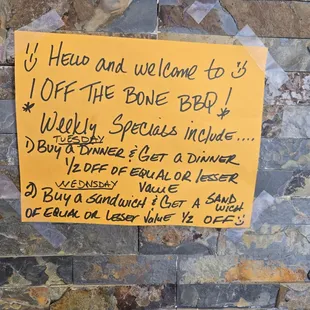 :) Hello and welcome to :)
! OFF THE BONE BBQ !
* Weekly Specials include.... *
TUESDAY
1) Buy a DINNER & GET a DINNER
1/2 OFF OF EQUAL OR LESSER
VALUE
WEDNSDAY
2) Buy a SANDWICH & GET A SANDWICH
OF EQUAL OR LESSER VALUE 1/2 OFF :)